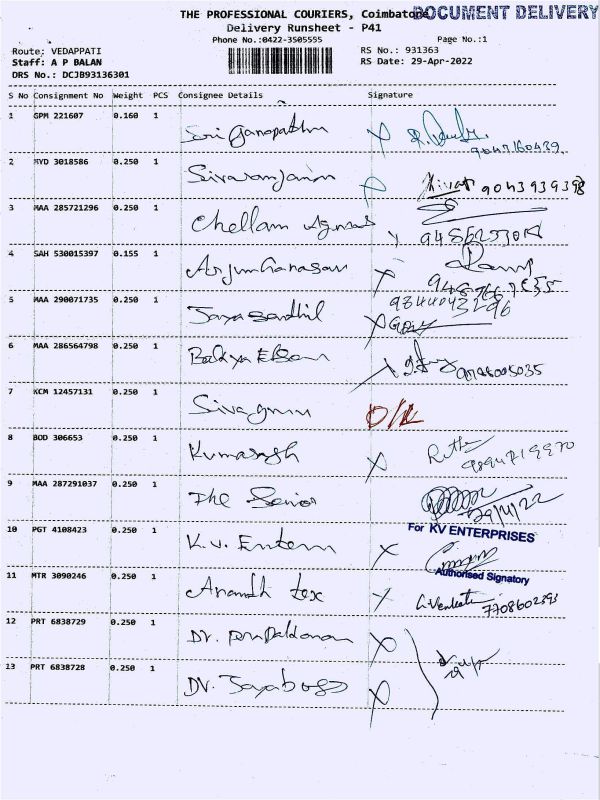 THE PROFESSIONAL COURIERS, Coimbatore
DOCUMENT DELIVERY
Delivery Runsheet - P41
Phone No.:0422-3505555
Page No.:1
Route: VEDAPPATI
RS No.: 931363
Staff: A P BALAN
RS Date: 29-Apr-2022
DRS No.: DCJB93136301
S No Consignment No Weight PCS Consignee Details Signature
1 GPM 221607 0.160 1 Sri Ganapathy
9047160439
2 MYD 3018586 0.250 1 Sivaranjani
9043939398
3 MAA 285721296 0.250 1 Chellam
4 SAH 530015397 0.155 1
5 MAA 290071735 0.250 1 Jaya Sendhil
6 MAA 286564798 0.250 1
7 KCM 12457131 0.250 1 Sivaguru
8 BOD 306653 0.250 1
9894719970
9 MAA 287291037 0.250 1 The Senior
29/4/22
10 PGT 4108423 0.250 1 K.V. Enterp
For KV ENTERPRISES
Authorised Signatory
11 MTR 3090246 0.250 1 Anandh tex
7708602393
12 PRT 6838729 0.250 1 Dr.
13 PRT 6838728 0.250 1 Dr.